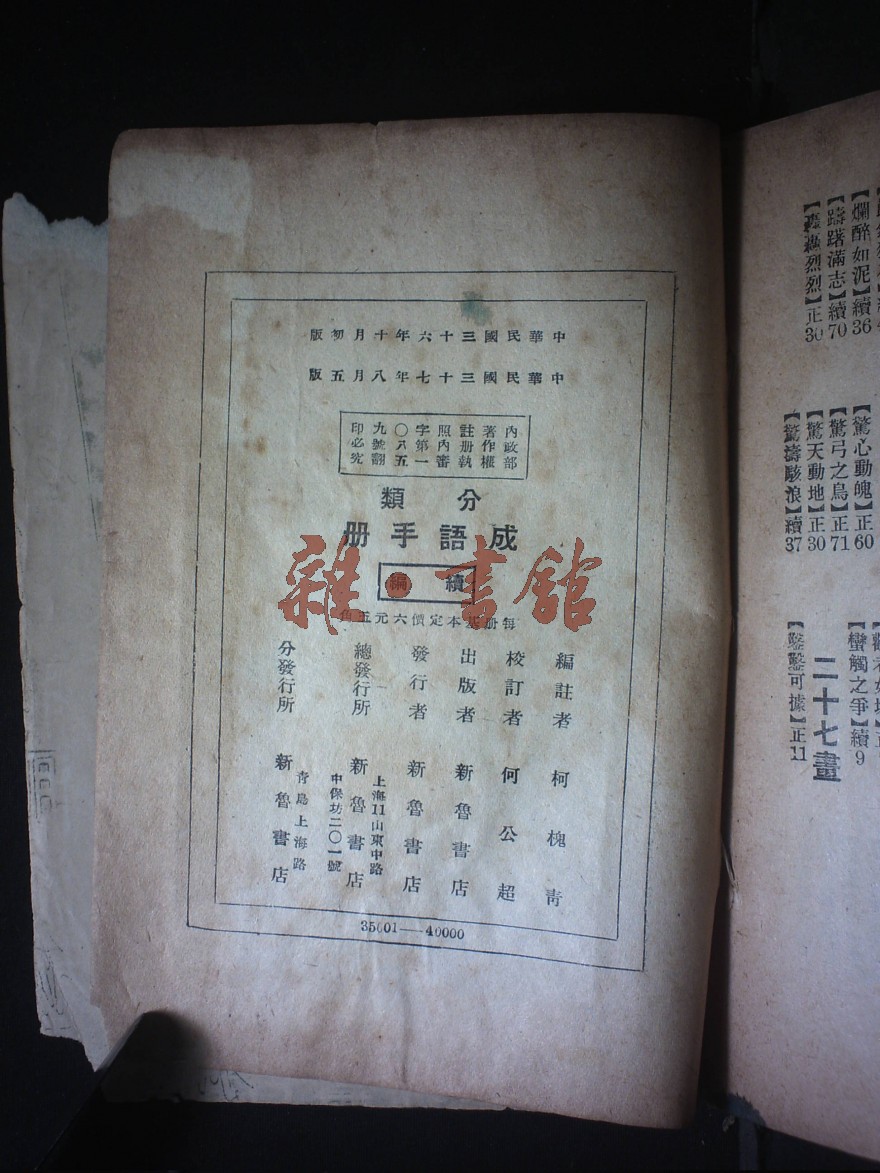 中華民國三十六年十月初版
中華民國三十七年八月五版
內政部
著作權
註册執
照內審
字第一
〇八五
九號翻
印必究
分類
成語手册
續編
每册基本定價六元五角
編註者 柯槐青
校訂者 何公超
出版者 新魯書店
發行者 新魯書店
總發行所 新魯書店
上海11山東中路
中保坊二〇一號
分發行所 新魯書店
青島上海路
35001——40000
雜·書館
【爛醉如泥】續36
【躊躇滿志】續70
【轟轟烈烈】正30
【驚心動魄】正60
【驚弓之鳥】正71
【驚天動地】正30
【驚濤駭浪】續37
【蠻觸之爭】續9
二十七畫
【鑿鑿可據】正11